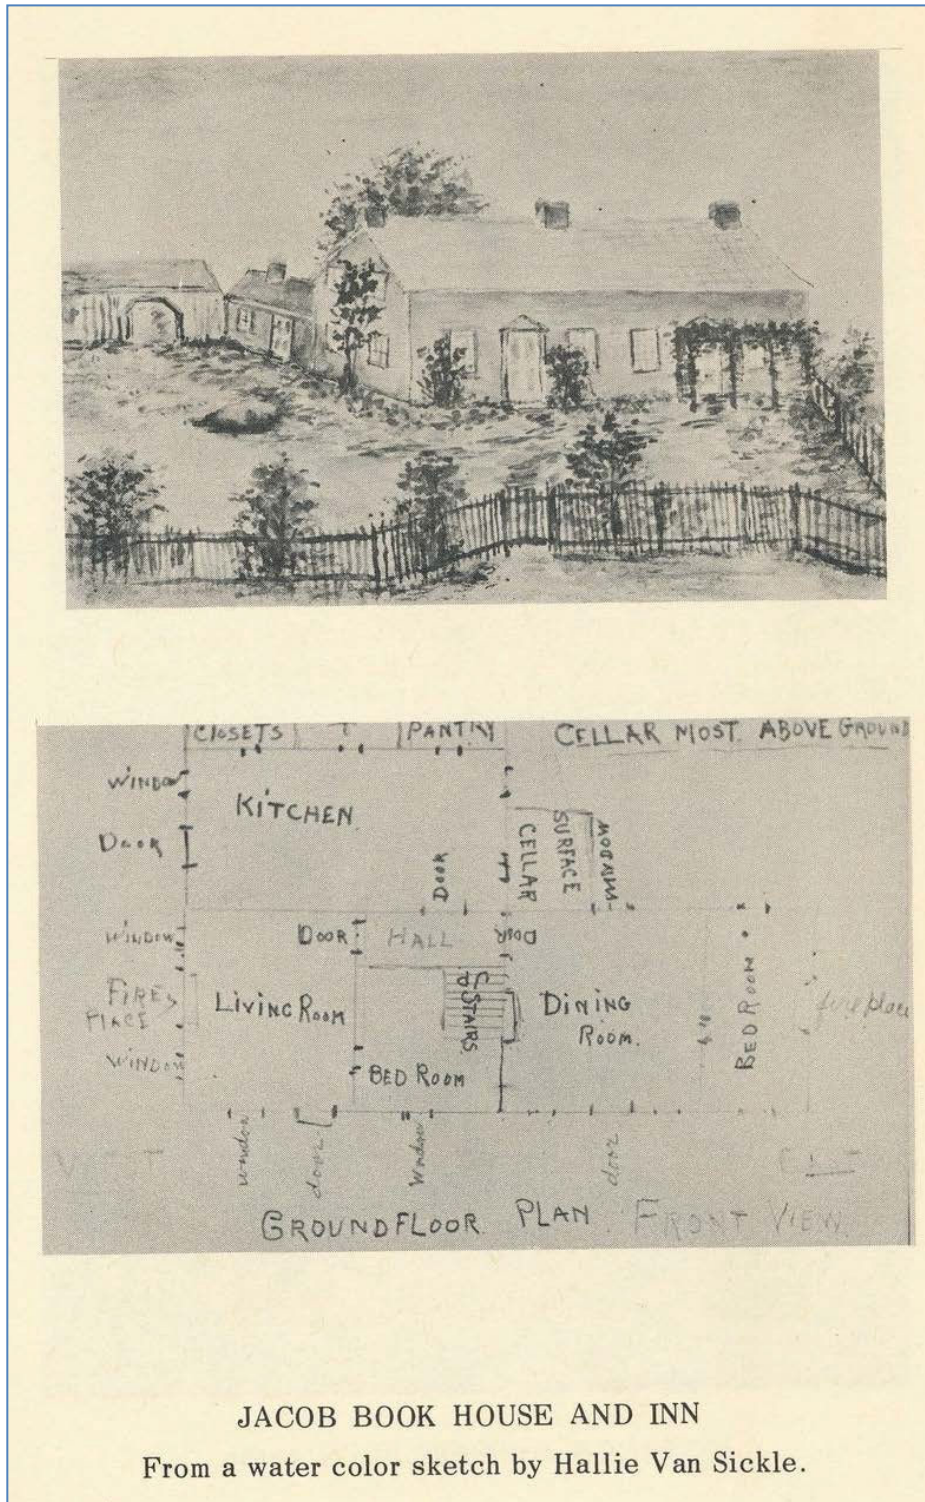 CLOSETS
PANTRY
CELLAR MOST ABOVE GROUND
WINDOW
KITCHEN
DOOR
CELLAR
SURFACE
WINDOW
DOOR
WINDOW
DOOR
HALL
DOOR
FIRE
PLACE
LIVING ROOM
UP
STAIRS
DINING
ROOM.
BED ROOM
fire place
WINDOW
BED ROOM
window
door
Window
door
WEST
GROUND FLOOR PLAN FRONT VIEW
JACOB BOOK HOUSE AND INN
From a water color sketch by Hallie Van Sickle.